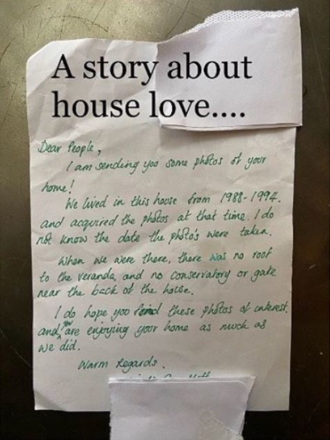 A story about
house love....
Dear People,
I am sending you some photos of your
home!
We lived in this house from 1988-1994.
and acquired the photos at that time. I do
not know the date the photo's were taken.
When we were there, there was no roof
to the veranda, and no conservatory or gate
near the back of the house.
I do hope you find these photos of interest.
and are enjoying your home as much as
we did.
Warm Regards.